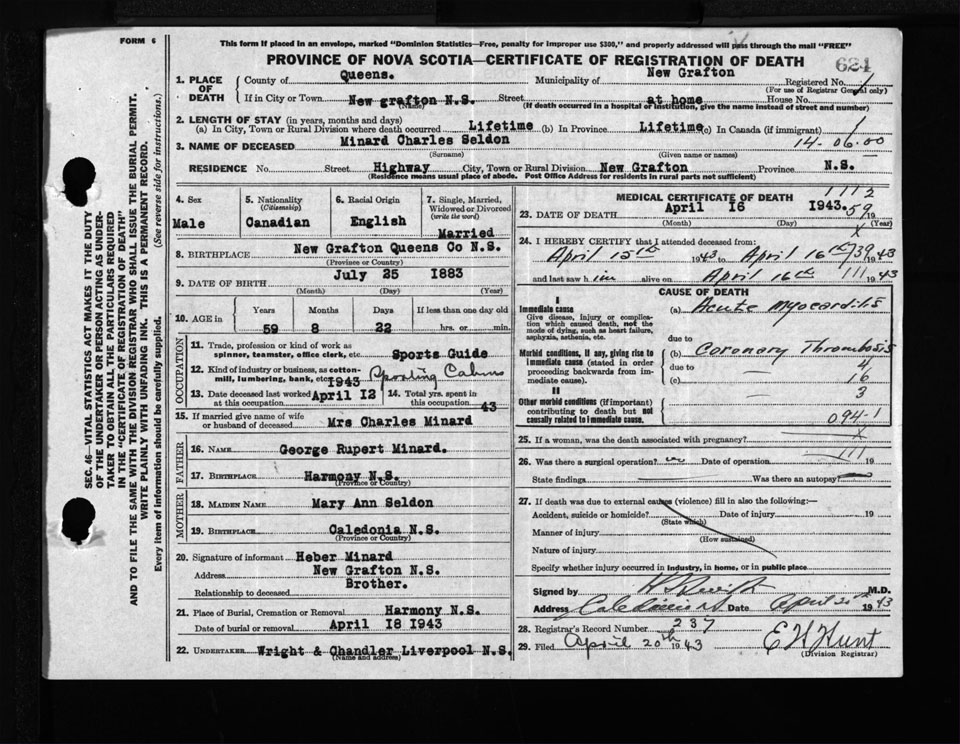 FORM 6
This form if placed in an envelope, marked "Dominion Statistics—Free, penalty for improper use $300," and properly addressed will pass through the mail "FREE"
PROVINCE OF NOVA SCOTIA—CERTIFICATE OF REGISTRATION OF DEATH
624
SEC. 46—VITAL STATISTICS ACT MAKES IT THE DUTY
OF THE UNDERTAKER OR PERSON ACTING AS UNDER-
TAKER TO OBTAIN ALL THE PARTICULARS REQUIRED
IN THE "CERTIFICATE OF REGISTRATION OF DEATH"
AND TO FILE THE SAME WITH THE DIVISION REGISTRAR WHO SHALL ISSUE THE BURIAL PERMIT.
WRITE PLAINLY WITH UNFADING INK. THIS IS A PERMANENT RECORD.
Every item of information should be carefully supplied. (See reverse side for instructions.)
1. PLACE OF DEATH
County of Queens. Municipality of New Grafton Registered No.
(For use of Registrar General only)
If in City or Town New grafton N.S. Street at home House No.
(Name) (If death occurred in a hospital or institution, give the name instead of street and number)
2. LENGTH OF STAY (in years, months and days)
(a) In City, Town or Rural Division where death occurred Lifetime (b) In Province Lifetime (c) In Canada (if immigrant)
3. NAME OF DECEASED Minard Charles Seldon 14-06.00
(Surname) (Given name or names)
RESIDENCE No. Street Highway City, Town or Rural Division New Grafton Province N.S.
(Residence means usual place of abode. Post Office Address for residents in rural parts not sufficient)
4. Sex Male
5. Nationality (Citizenship) Canadian
6. Racial Origin English
7. Single, Married, Widowed or Divorced (write the word) Married
8. BIRTHPLACE New Grafton Queens Co N.S.
(Province or Country)
9. DATE OF BIRTH July 25 1883
(Month) (Day) (Year)
10. AGE in Years Months Days If less than one day old
59 8 22 hrs. or min.
OCCUPATION
11. Trade, profession or kind of work as
spinner, teamster, office clerk, etc. Sports Guide
12. Kind of industry or business, as cotton-
mill, lumbering, bank, etc. Sporting Cabins
13. Date deceased last worked at this occupation April 12 1943
14. Total yrs. spent in this occupation 43
15. If married give name of wife
or husband of deceased Mrs Charles Minard
FATHER
16. NAME George Rupert Minard.
17. BIRTHPLACE Harmony N.S.
(Province or Country)
MOTHER
18. MAIDEN NAME Mary Ann Seldon
19. BIRTHPLACE Caledonia N.S.
(Province or Country)
20. Signature of informant Heber Minard
Address New Grafton N.S.
Relationship to deceased Brother.
21. Place of Burial, Cremation or Removal Harmony N.S.
Date of burial or removal April 18 1943
22. UNDERTAKER Wright & Chandler Liverpool N.S.
(Name and address)
MEDICAL CERTIFICATE OF DEATH 1112
23. DATE OF DEATH April 16 1943. 59 19
(Month) (Day) (Year)
X
24. I HEREBY CERTIFY that I attended deceased from:
April 15th 1943 to April 16th 1943
739
and last saw him alive on April 16th 1943
111
CAUSE OF DEATH
I
Immediate cause
Give disease, injury or complica-
tion which caused death, not the
mode of dying, such as heart failure,
asphyxia, asthenia, etc.
(a) Acute Myocarditis
due to
Morbid conditions, if any, giving rise to
immediate cause (stated in order
proceeding backwards from im-
mediate cause).
(b) Coronary Thrombosis
due to 4
(c) 16
3
II
Other morbid conditions (if important)
contributing to death but not
causally related to immediate cause.
094-1
X
25. If a woman, was the death associated with pregnancy?
111
26. Was there a surgical operation? no Date of operation 19
State findings Was there an autopsy?
27. If death was due to external causes (violence) fill in also the following:—
Accident, suicide or homicide? Date of injury 19
(State which)
Manner of injury
(How sustained)
Nature of injury
Specify whether injury occurred in industry, in home, or in public place
Signed by M.D.
Address Caledonia NS Date April 1943
28. Registrar's Record Number 237
29. Filed April 20th 1943 E H Hunt
(Division Registrar)